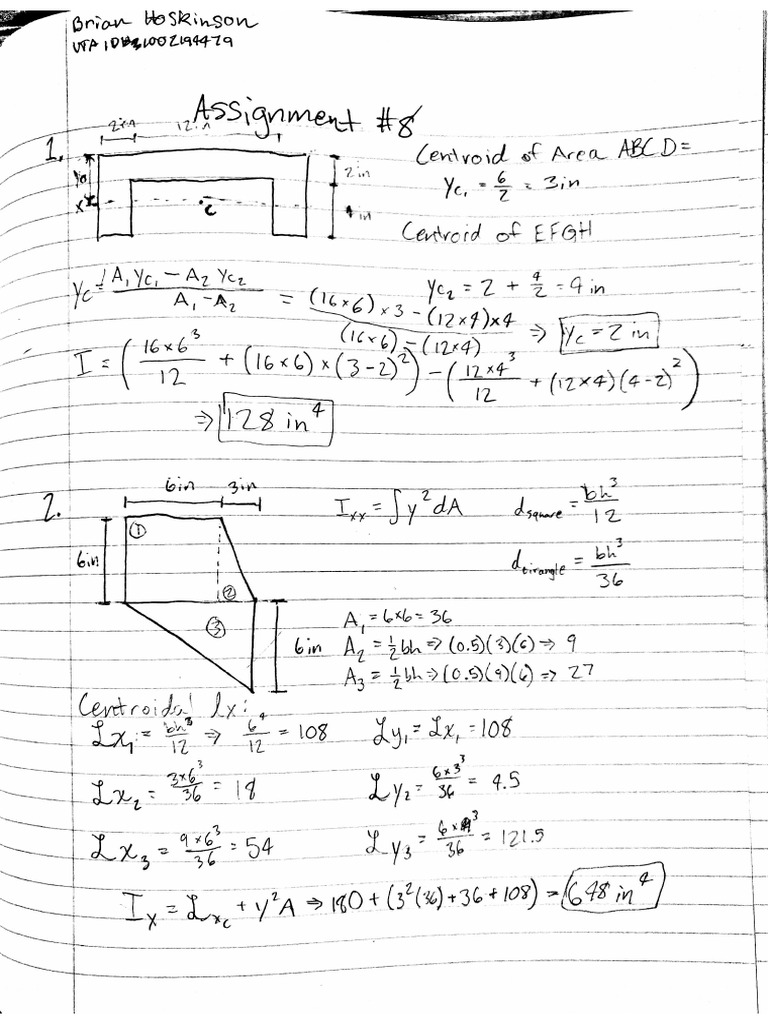 Brian Hoskinson
Assignment #8
1.
2in 12in
2in
4in
c
Centroid of Area ABCD =
Yc₁ = 6/2 = 3in
Centroid of EFGH
Yc₂ = 2 + 4/2 = 4in
Yc = (A₁Yc₁ − A₂Yc₂)/(A₁ − A₂) = ((16×6)×3 − (12×4)×4)/((16×6) − (12×4)) ⇒ Yc = 2 in
I = (16×6³/12 + (16×6)×(3−2)²) − (12×4³/12 + (12×4)(4−2)²)
⇒ 128 in⁴
2.
6in 3in
6in
① ② ③
6in
Ixx = ∫y²dA
d square = bh³/12
d tirangle = bh³/36
A₁ = 6×6 = 36
A₂ = ½bh ⇒ (0.5)(3)(6) ⇒ 9
A₃ = ½bh ⇒ (0.5)(9)(6) ⇒ 27
Centroidal Ix:
Ix₁ = bh³/12 ⇒ 6⁴/12 = 108 Iy₁ = Ix₁ = 108
Ix₂ = 3×6³/36 = 18 Iy₂ = 6×3³/36 = 4.5
Ix₃ = 9×6³/36 = 54 Iy₃ = 6×9³/36 = 121.5
Ix = Ixc + y²A ⇒ 180 + (3²(36) + 36 + 108) = 648 in⁴